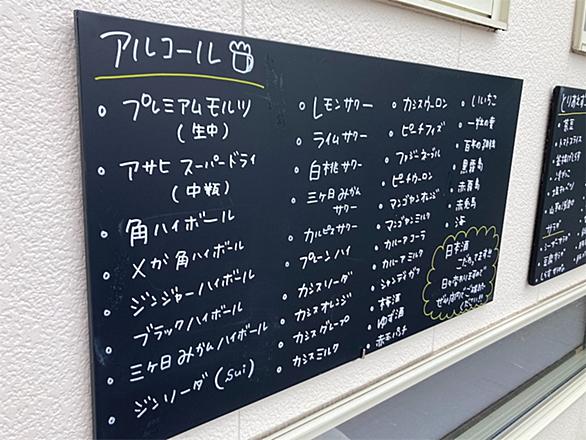 アルコール
プレミアムモルツ
(生中)
アサヒ スーパードライ
(中瓶)
角ハイボール
メガ角ハイボール
ジンジャーハイボール
ブラックハイボール
三ヶ日みかんハイボール
ジンソーダ(sui)
レモンサワー
ライムサワー
白桃サワー
三ヶ日みかん
サワー
カルピスサワー
プレーンハイ
カシスソーダ
カシスオレンジ
カシスグレープ
カシスミルク
カシスウーロン
ピーチフィズ
ファジーネーブル
ピーチウーロン
マンゴヤンオレンジ
マンゴヤンミルク
カルーアコーラ
カルーアミルク
シャンディガフ
梅酒
ゆず酒
赤玉パンチ
いいちこ
一粒の麦
百年の孤独
黒霧島
赤霧島
赤兎馬
海
日本酒
こだわってます!!
日々変わりますので